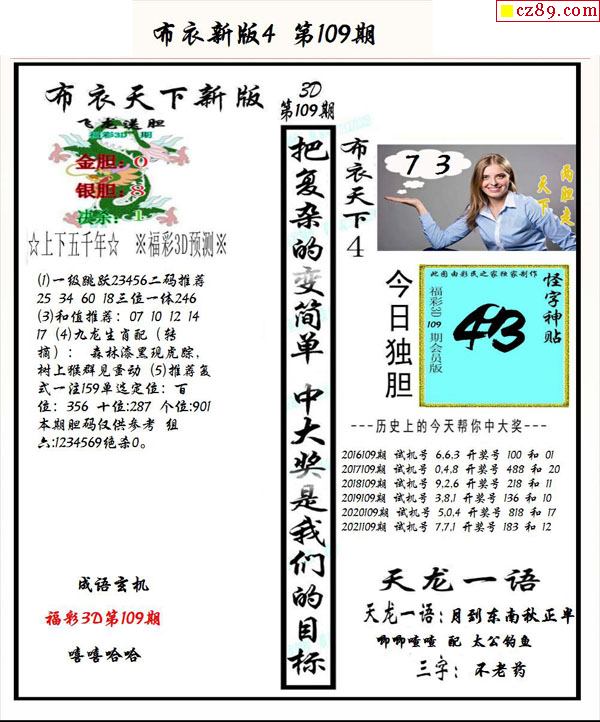 cz89.com
布衣新版4 第109期
布衣天下新版
飞龙送胆
福彩3D 期
金胆：0
银胆：8
决杀：1
☆上下五千年☆ ※福彩3D预测※
(1)一级跳跃23456二码推荐
25 34 60 18三位一体246
(3)和值推荐：07 10 12 14
17 (4)九龙生肖配（转
摘）：森林漆黑现虎踪，
树上猴群见蚤动 (5)推荐复
式一注159单选定位：百
位：356 十位:287 个位:901
本期胆码仅供参考 组
六:1234569绝杀0。
成语玄机
福彩3D第109期
嘻嘻哈哈
3D
第109期
把复杂的变简单 中大奖是我们的目标
布衣天下4
7 3
两胆走
天下
今日独胆
此图由彩民之家独家制作
福彩3D 109 期会员版
怪字神贴
---历史上的今天帮你中大奖---
2016109期 试机号 6.6.3 开奖号 100 和 01
2017109期 试机号 0.4.8 开奖号 488 和 20
2018109期 试机号 9.2.6 开奖号 218 和 11
2019109期 试机号 3.8.1 开奖号 136 和 10
2020109期 试机号 5.0.4 开奖号 818 和 17
2021109期 试机号 7.7.1 开奖号 183 和 12
天龙一语
天龙一语：月到东南秋正半
唧唧喳喳 配 太公钓鱼
三字：不老药